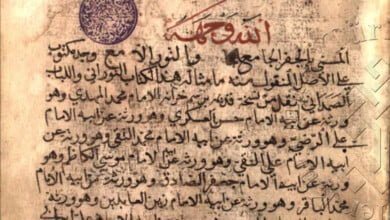 الله وجهه
المسمى بالجفر الجامع والنور الامع وجد مكتوب
على الاصل المنقول منه ما مثاله هذا الكتاب النوراني
الصمداني نقل من نسخة قديمة من خزانة الامام محمد المهدي وهو
ورثه عن ابيه الامام حسن العسكري وهو ورثه عن ابيه الامام
على الرضى وهو ورثه عن ابيه الامام محمد التقي وهو ورثه عن
ابيه الامام على النقي وهو ورثه عن ابيه الامام موسى الكاظم وهو
ورثه عن ابيه الامام جعفر الصادق وهو ورثه عن ابيه الامام
محمد الباقر وهو ورثه عن ابيه الامام زين العابدين وهو ورثه